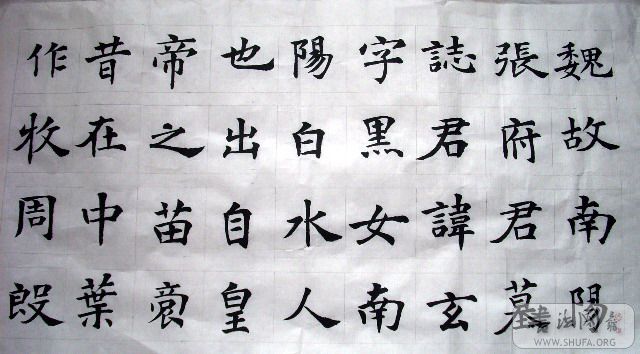 魏故南陽
張府君墓
誌君諱玄
字黑女南
陽白水人
也出自皇
帝之苗裔
昔在中葉
作牧周殷
WWW.SHUFA.ORG